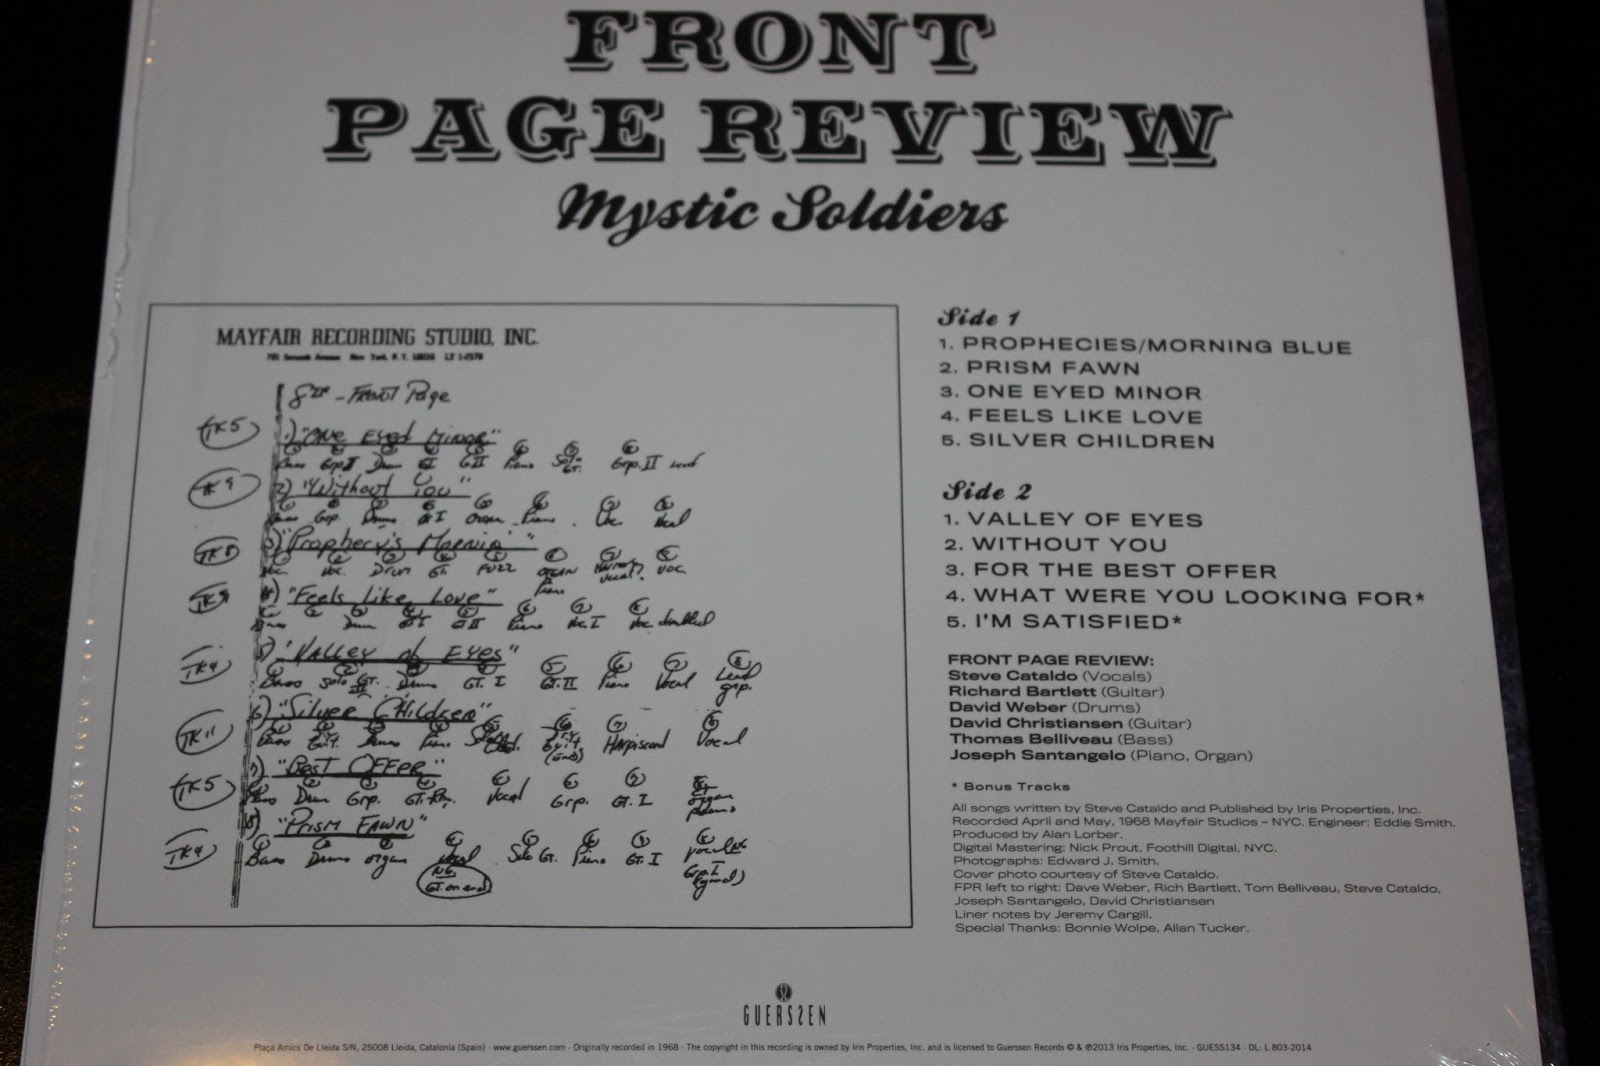 FRONT
PAGE REVIEW
Mystic Soldiers
MAYFAIR RECORDING STUDIO, INC.
701 Seventh Avenue New York, N.Y. 10036 LT 1-2570
Front Page
TK5 1) "One Eyed Minor"
Bass Grp I Drum GI GII Piano Solo GT. Grp. II Lead
2) "Without You"
Grp. Drums GT I Organ Piano Voc Vocal
TK8 3) "Prophecy's Mornin'"
Voc. Voc. Drum GT. FUZZ ORGAN Piano Harmony Vocal? Voc
4) "Feels Like Love"
Bass Drum GT I GT II Piano Voc. I Voc doubled
TK4 5) "Valley of Eyes"
Bass Solo GT. III Drums GT. I GT. II Piano Vocal Lead grp.
TK11 6) "Silver Children"
Bass Drums Piano Harpiscord Vocal
TK5 7) "Best Offer"
Bass Drum Grp. GT. Rhy. Vocal Grp. GT. I organ piano
TK4 8) "Prism Fawn"
Bass Drums organ Vocal NG GT. on end Solo GT. Piano GT. I
Side 1
1. PROPHECIES/MORNING BLUE
2. PRISM FAWN
3. ONE EYED MINOR
4. FEELS LIKE LOVE
5. SILVER CHILDREN
Side 2
1. VALLEY OF EYES
2. WITHOUT YOU
3. FOR THE BEST OFFER
4. WHAT WERE YOU LOOKING FOR*
5. I'M SATISFIED*
FRONT PAGE REVIEW:
Steve Cataldo (Vocals)
Richard Bartlett (Guitar)
David Weber (Drums)
David Christiansen (Guitar)
Thomas Belliveau (Bass)
Joseph Santangelo (Piano, Organ)
* Bonus Tracks
All songs written by Steve Cataldo and Published by Iris Properties, Inc.
Recorded April and May, 1968 Mayfair Studios – NYC. Engineer: Eddie Smith.
Produced by Alan Lorber.
Digital Mastering: Nick Prout, Foothill Digital, NYC.
Photographs: Edward J. Smith.
Cover photo courtesy of Steve Cataldo.
FPR left to right: Dave Weber, Rich Bartlett, Tom Belliveau, Steve Cataldo,
Joseph Santangelo, David Christiansen
Liner notes by Jeremy Cargill.
Special Thanks: Bonnie Wolpe, Allan Tucker.
GUERSSEN
Plaça Amics De Lleida S/N, 25008 Lleida, Catalonia (Spain) · www.guerssen.com · Originally recorded in 1968 · The copyright in this recording is owned by Iris Properties, Inc. and is licensed to Guerssen Records © & ℗2013 Iris Properties, Inc. · GUESS134 · DL: L 803-2014